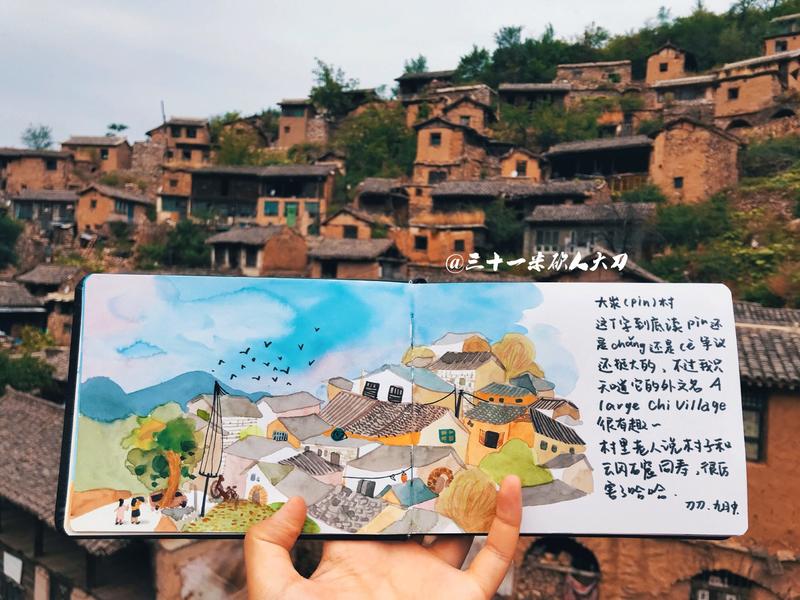 @三十一米砍人大刀
大汖(pin)村
这个字到底读pin还
是chǎng还是cè争议
还挺大的，不过我只
知道它的外文名 A
large Chi Village
很有趣~
村里老人说村子和
云冈石窟同寿，很厉
害了哈哈.
刀刀.九月中.